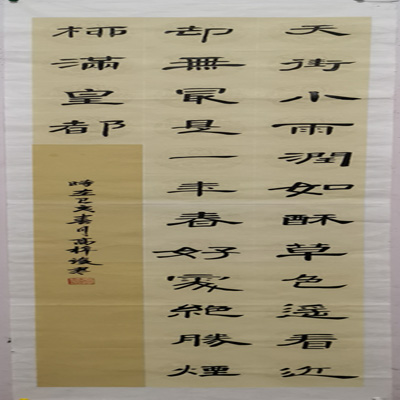 天街小雨潤如酥草色遥看近
却無最是一年春好處絕勝煙
柳滿皇都
時在己亥春月